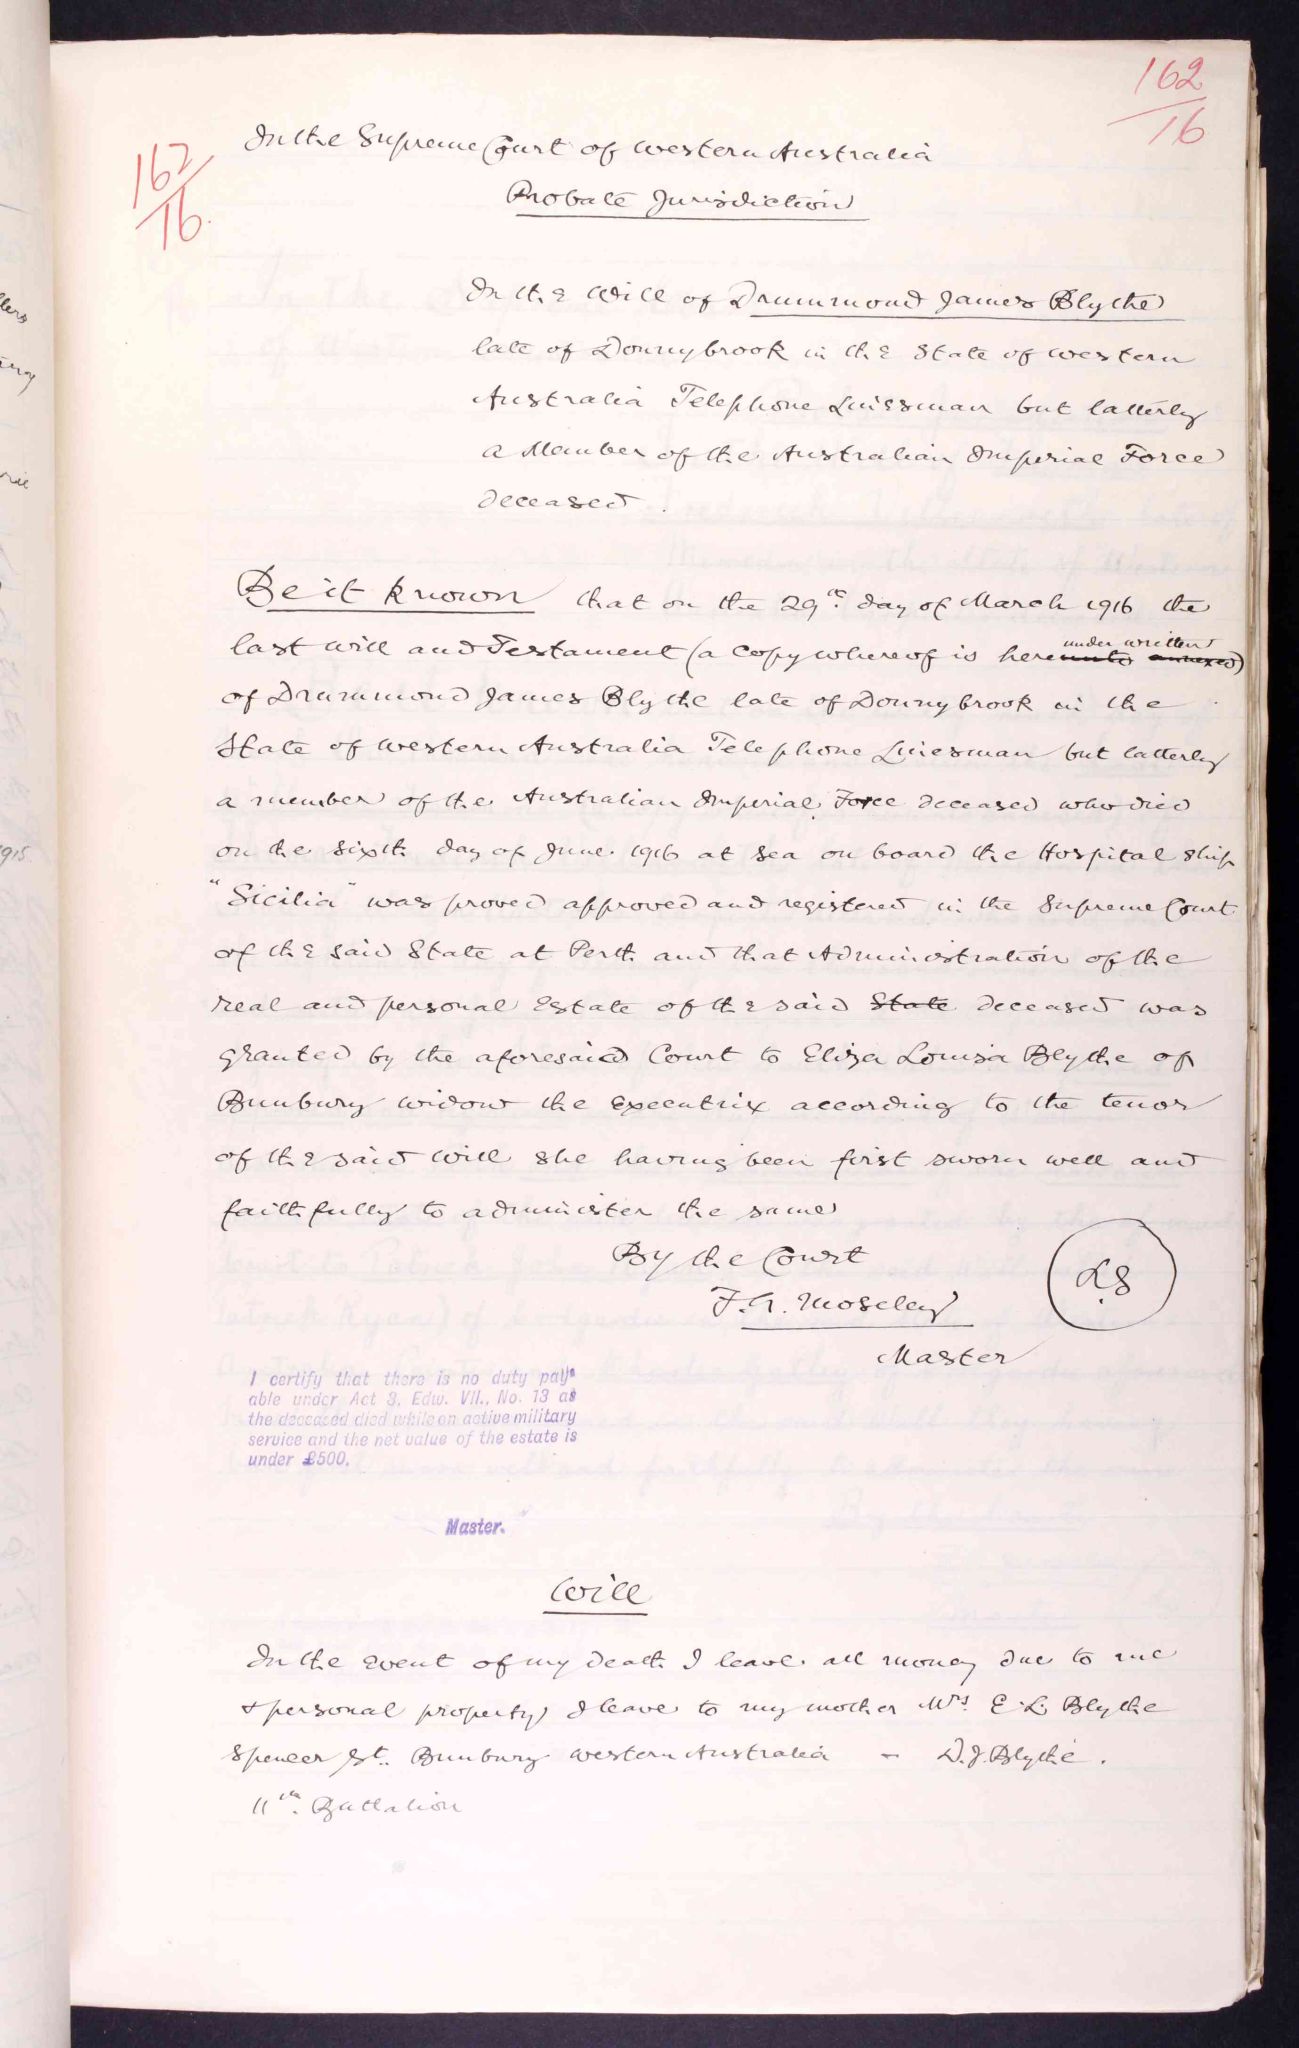 162
16
162
16.
In the Supreme Court of Western Australia
Probate Jurisdiction
In the Will of Drummond James Blythe
late of Donnybrook in the State of Western
Australia Telephone Linesman but latterly
a Member of the Australian Imperial Force
deceased.
Be it known that on the 29th day of March 1916 the
last will and Testament (a copy whereof is hereunto under written annexed)
of Drummond James Blythe late of Donnybrook in the
State of Western Australia Telephone Linesman but latterly
a member of the Australian Imperial Force deceased who died
on the sixth day of June 1916 at sea on board the Hospital ship
"Sicilia" was proved approved and registered in the Supreme Court
of the said State at Perth and that Administration of the
real and personal Estate of the said State deceased was
granted by the aforesaid Court to Eliza Louisa Blythe of
Bunbury widow the Executrix according to the tenor
of the said will she having been first sworn well and
faithfully to administer the same
By the Court
F.A. Moseley
L.S
Master
I certify that there is no duty pay-
able under Act 3, Edw. VII., No. 13 as
the deceased died while on active military
service and the net value of the estate is
under £500.
Master.
Will
In the event of my death I leave all money due to me
& personal property I leave to my mother Mrs E.L. Blythe
Spencer St. Bunbury Western Australia - D.J. Blythe.
11th. Battalion
1915